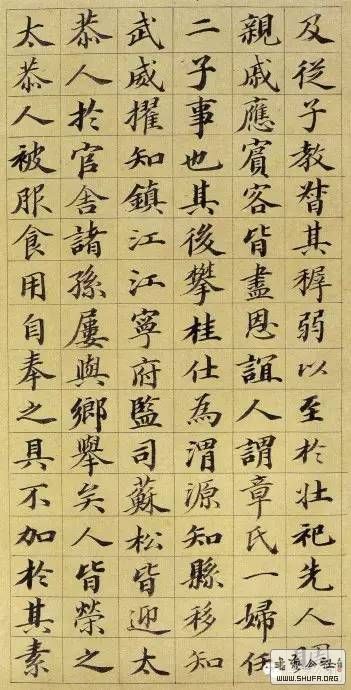 及從子教督其稺弱以至於壯祀先人
親戚應賓客皆盡恩誼人謂章氏一婦任
二子事也其後攀桂仕為渭源知縣移知
武威擢知鎮江江寧府監司蘇松皆迎太
恭人於官舍諸孫屢與鄉舉矣人皆榮之
太恭人被服食用自奉之具不加於其素
WWW.SHUFA.ORG